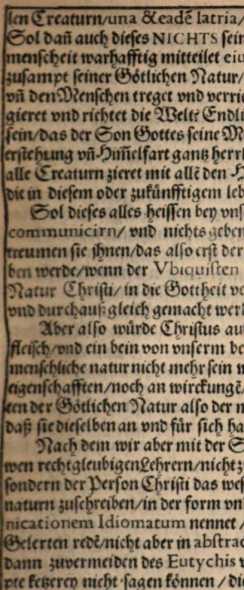 len Creaturn/una & eadē latria/
Sol dañ auch dieses NICHTS sein
menscheit warhafftig mitteilet
zusampt seiner Götlichen Natur/
vñ den Menschen treget vnd
gieret vnd richtet die Welt
sein/das der Son Gottes seine
vñ Him̃elfart gantz
alle Creaturn zieret mit allē den
die in diesem oder zukünfftigem
Sol dieses alles heissen bey
communicirn/ vnd nichts geben
treumen sie ihnen/das also erst der
ben werde/wenn der Vbiquisten
Natur Christi/ in die Gottheit
vnd durchauß gleich gemacht
Aber also würde Christus
fleisch/vnd ein bein von vnserm
menschliche natur nicht mehr sein
eigenschafften/noch an wirckungē/
ten der Götlichen Natur also der
daß sie dieselben an vnd für sich
Nach dem wir aber mit der
wen rechtgleubigen Lehrern/nicht
sondern der Person Christi das
naturn zuschreiben/in der form
nicationem Idiomatum nennet/
Gelerten redē/nicht aber in
dann zuvermeiden des Eutychis
die ketzerey nicht sagen können/